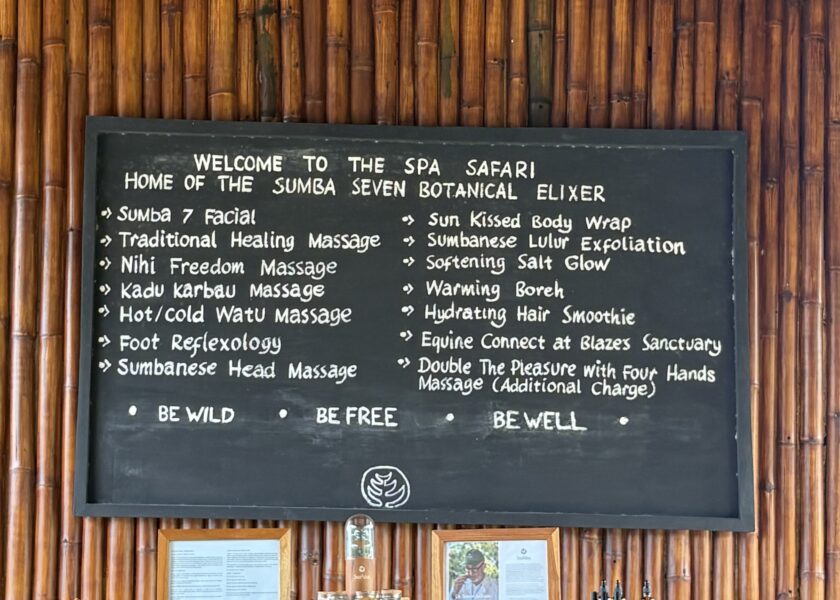 WELCOME TO THE SPA SAFARI
HOME OF THE SUMBA SEVEN BOTANICAL ELIXER
Sumba 7 Facial
Traditional Healing Massage
Nihi Freedom Massage
Kadu Karbau Massage
Hot/cold Watu Massage
Foot Reflexology
Sumbanese Head Massage
Sun Kissed Body Wrap
Sumbanese Lulur Exfoliation
Softening Salt Glow
Warming Boreh
Hydrating Hair Smoothie
Equine Connect at Blazes Sanctuary
Double The Pleasure with Four Hands
Massage (Additional Charge)
• BE WILD • BE FREE • BE WELL •